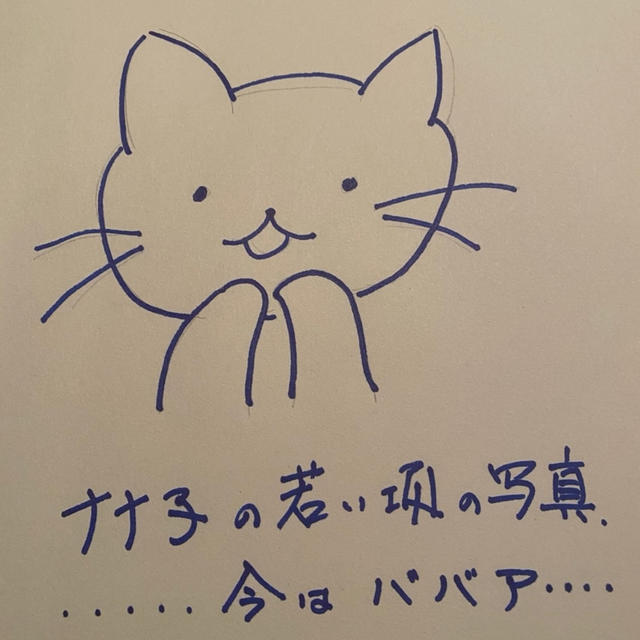 ナナ子の若い頃の写真.
......今はババア....